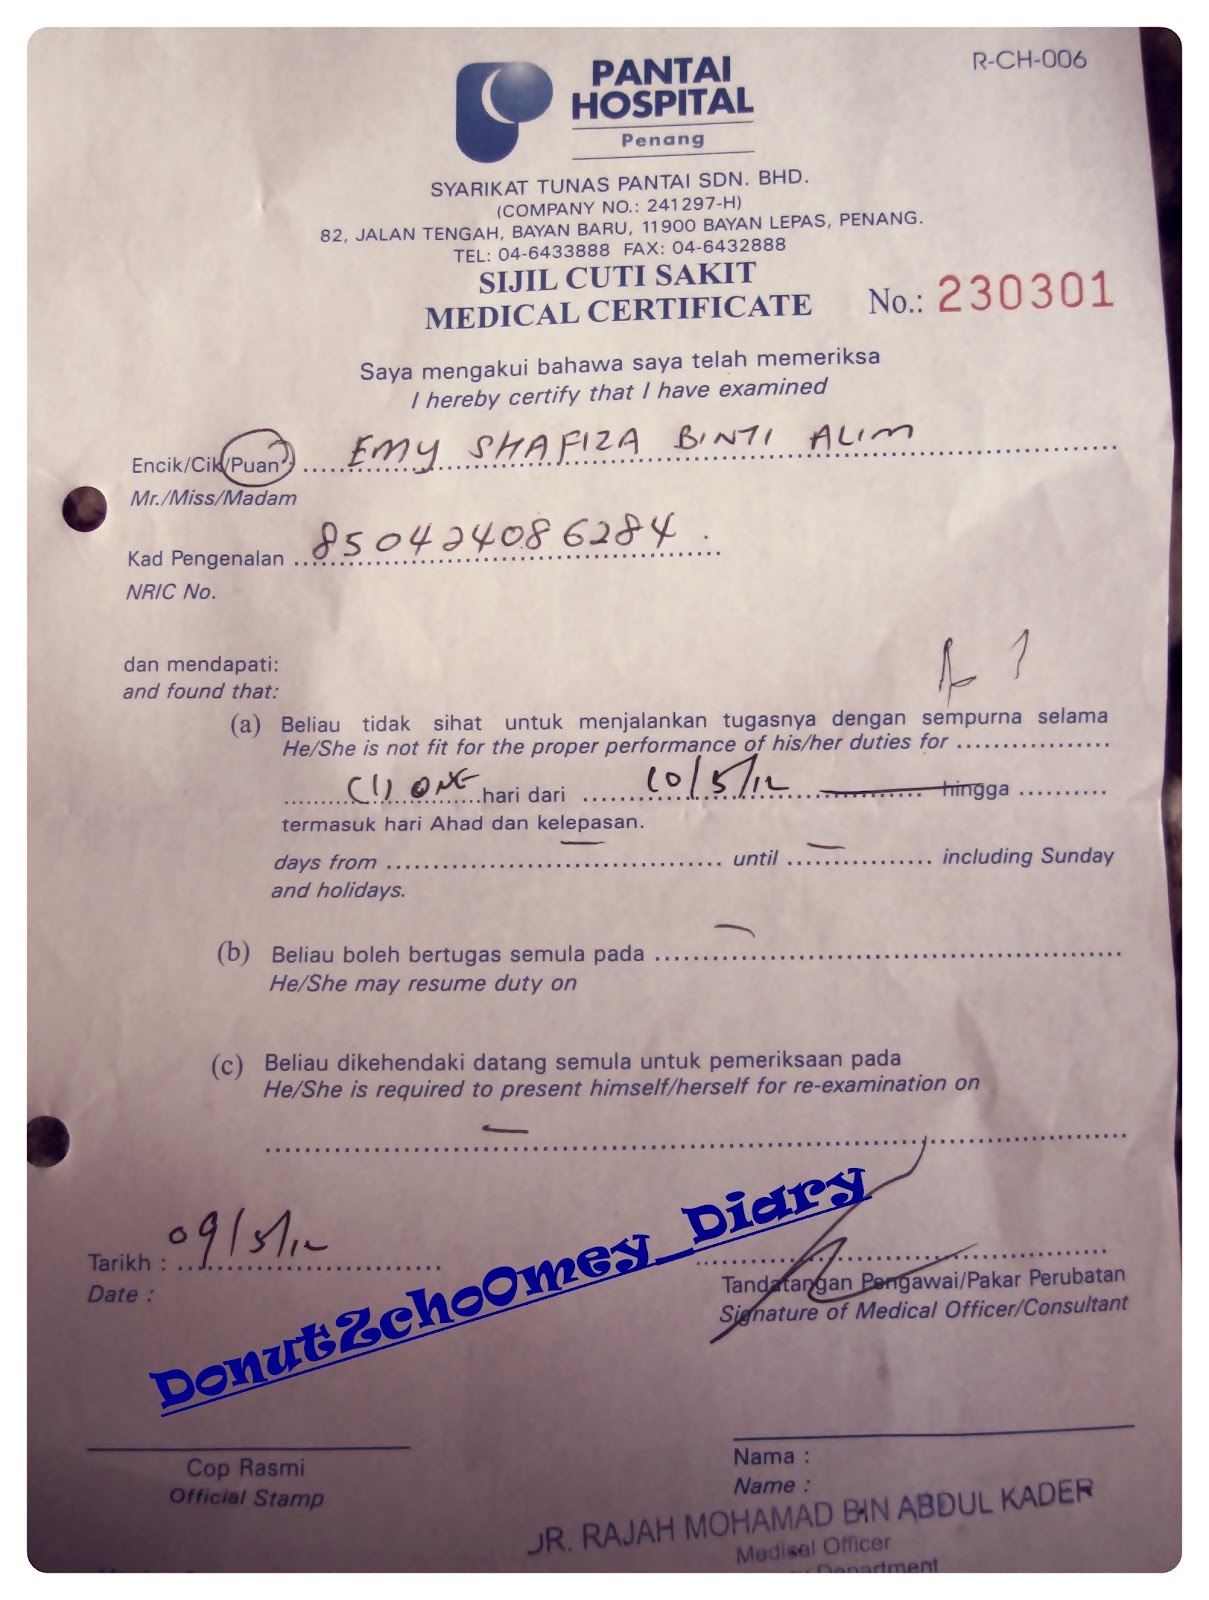 R-CH-006
PANTAI
HOSPITAL
Penang
SYARIKAT TUNAS PANTAI SDN. BHD.
(COMPANY NO.: 241297-H)
82, JALAN TENGAH, BAYAN BARU, 11900 BAYAN LEPAS, PENANG.
TEL: 04-6433888 FAX: 04-6432888
SIJIL CUTI SAKIT
MEDICAL CERTIFICATE No.: 230301
Saya mengakui bahawa saya telah memeriksa
I hereby certify that I have examined
Encik/Cik/Puan : EMY SHAFIZA BINTI ALIM
Mr./Miss/Madam
Kad Pengenalan 850424086284.
NRIC No.
dan mendapati:
and found that:
(a) Beliau tidak sihat untuk menjalankan tugasnya dengan sempurna selama
He/She is not fit for the proper performance of his/her duties for
(1) ONE hari dari 10/5/12 hingga
termasuk hari Ahad dan kelepasan.
days from until including Sunday
and holidays.
(b) Beliau boleh bertugas semula pada
He/She may resume duty on
(c) Beliau dikehendaki datang semula untuk pemeriksaan pada
He/She is required to present himself/herself for re-examination on
Tarikh : 09/5/12
Date :
Donut2cho0mey_Diary
Tandatangan Pengawai/Pakar Perubatan
Signature of Medical Officer/Consultant
Cop Rasmi
Official Stamp
Nama :
Name :
RAJAH MOHAMAD BIN ABDUL KADER
Medical Officer
Department